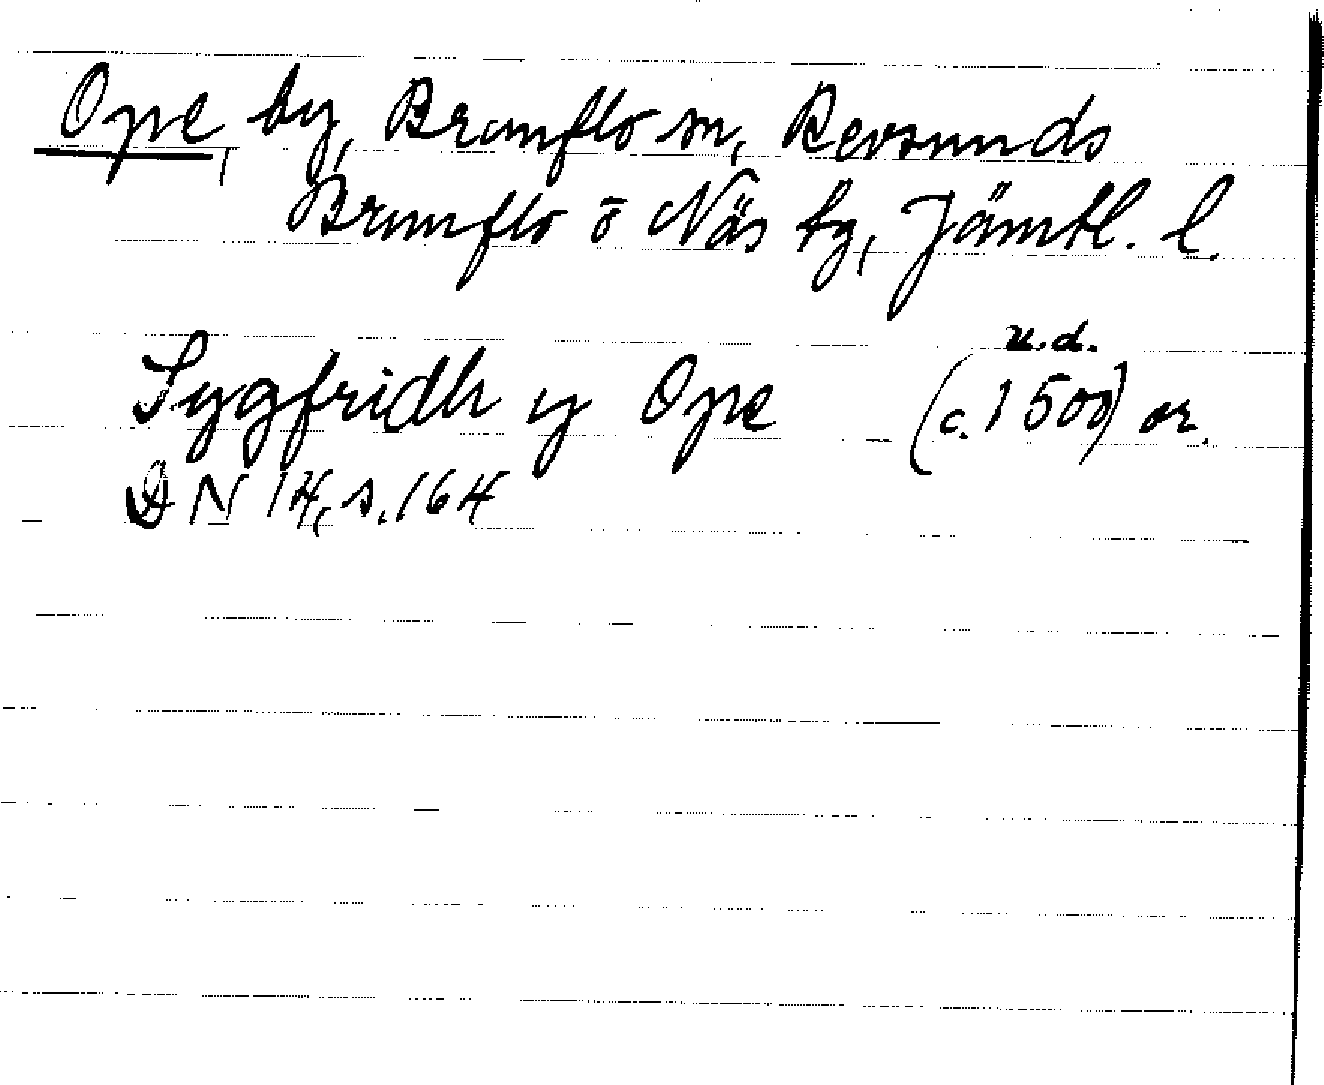 Ope, by, Brunflo sn, Revsunds
Brunflo o Näs tg, Jämtl. l.
u.d.
Sygfridh y Ope (c. 1500) or.
DN 14, s. 164